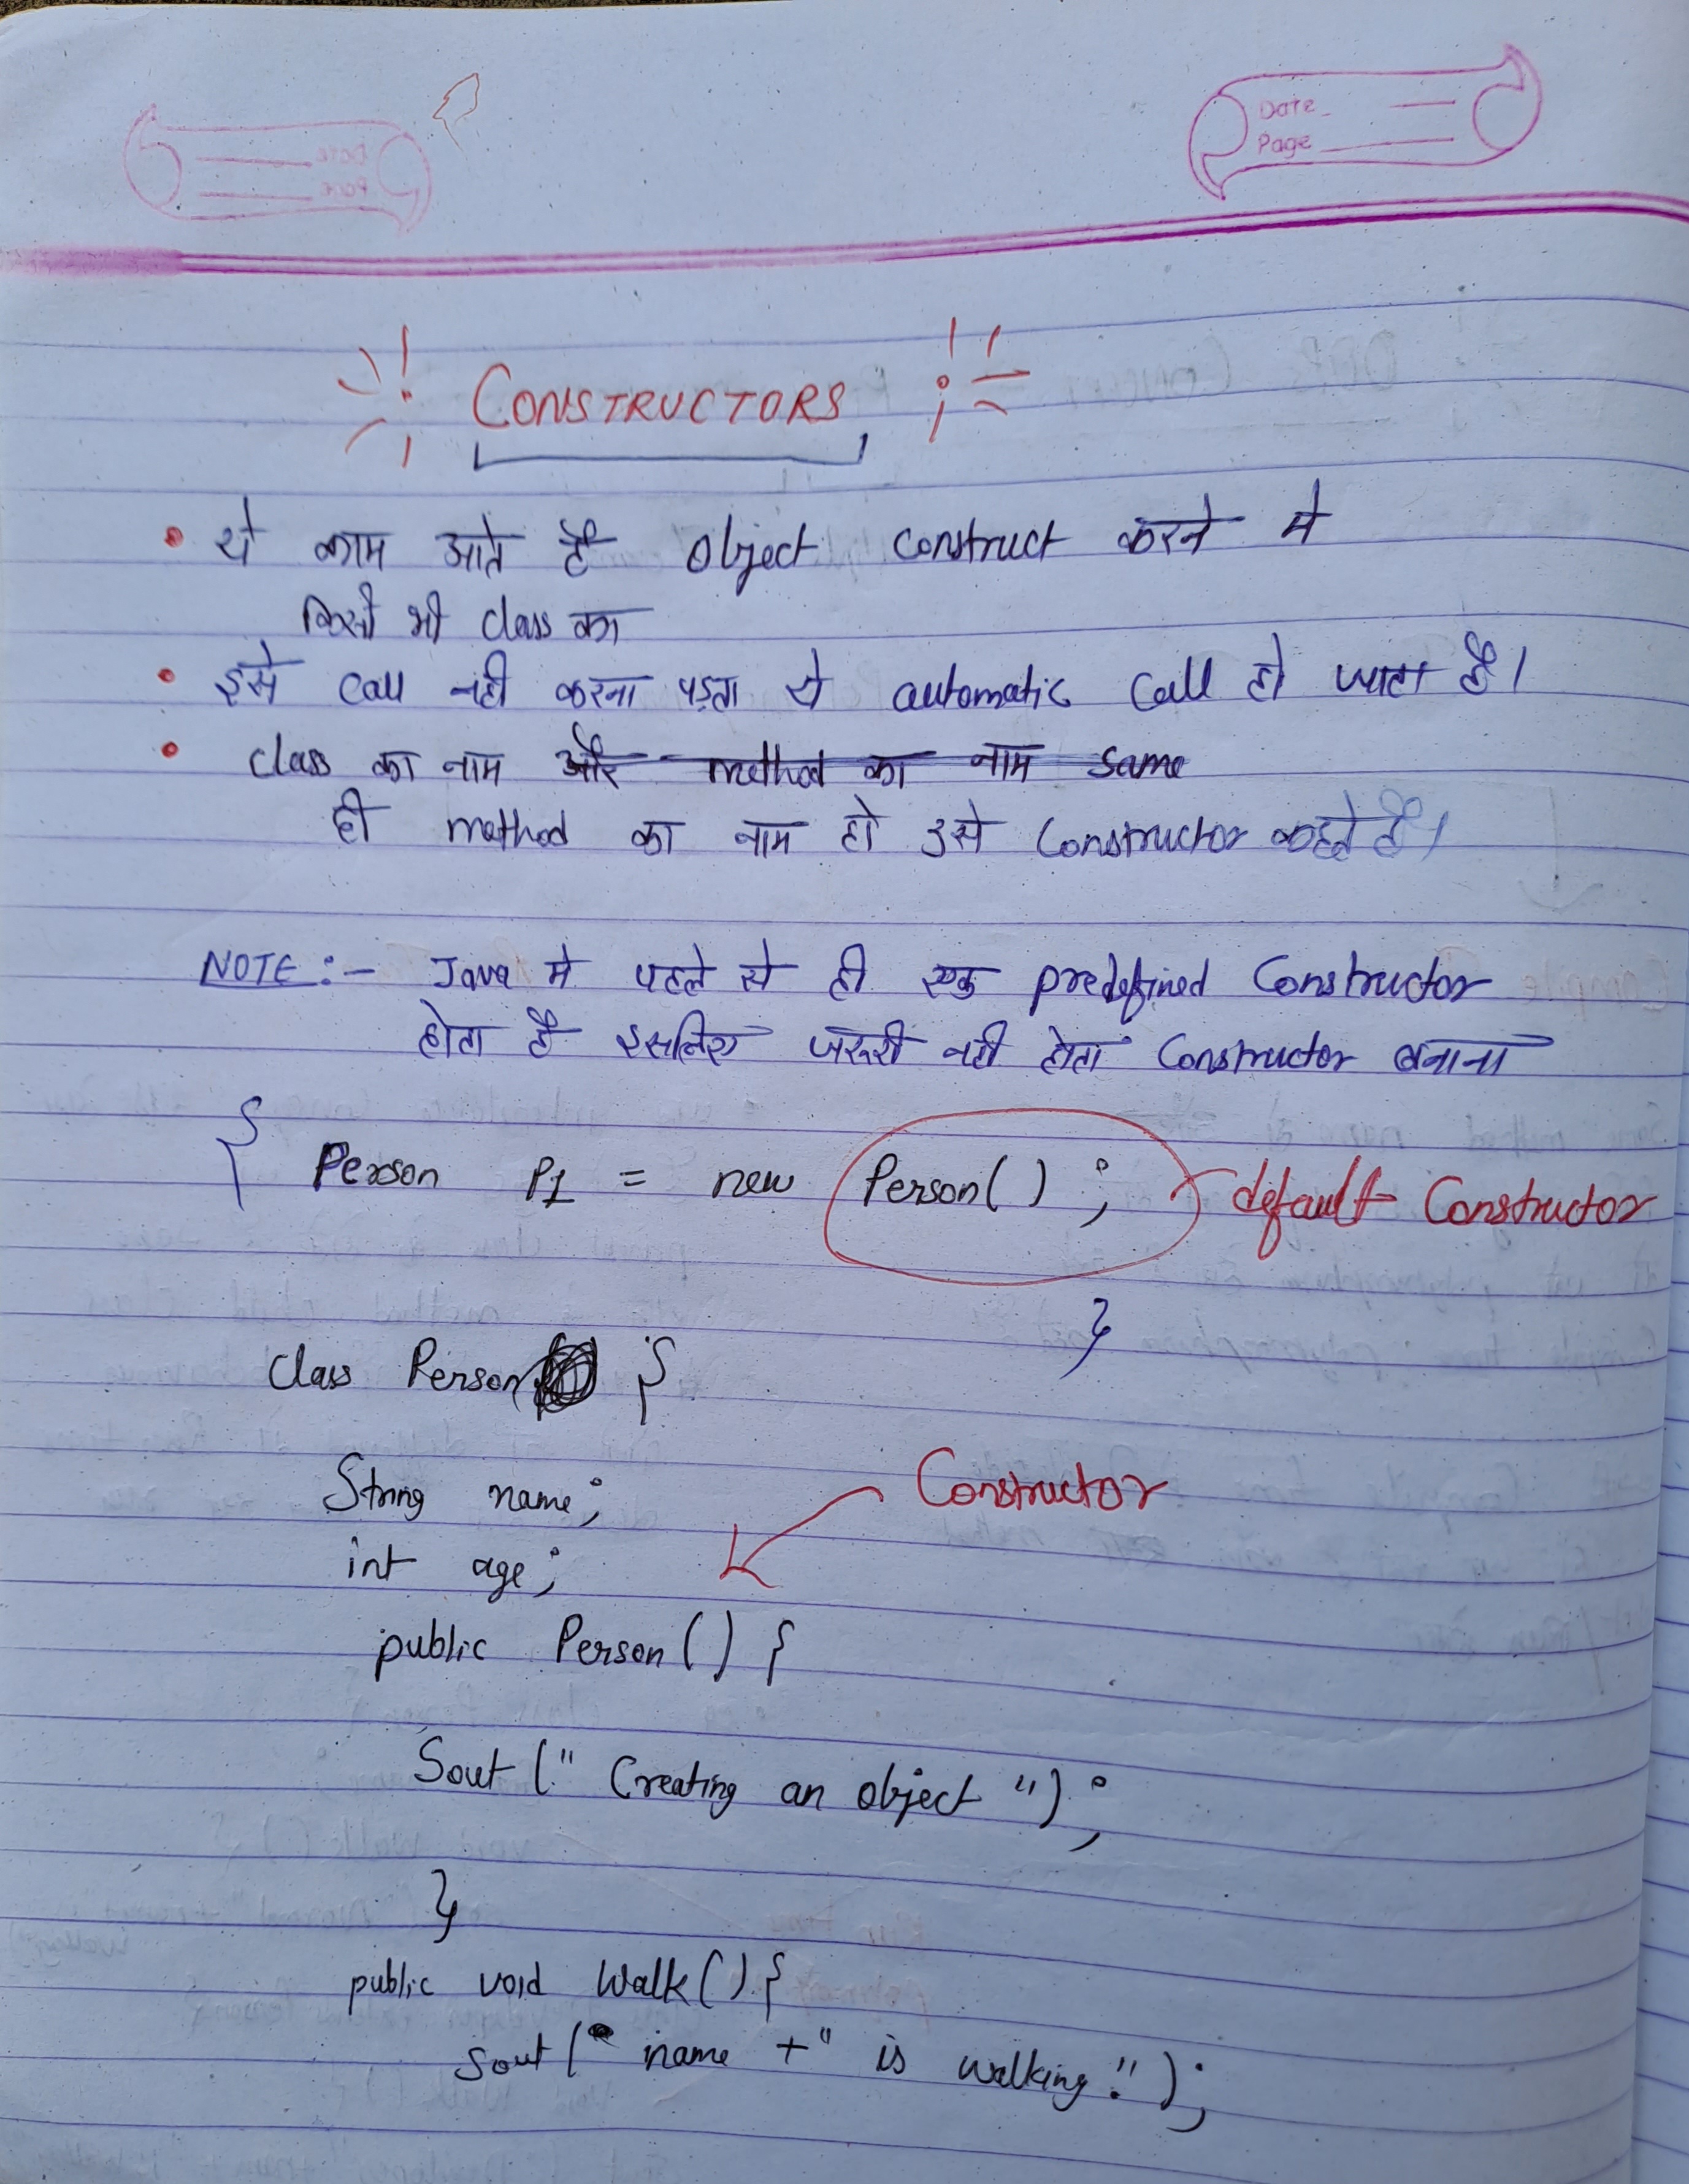 Date
Page
CONSTRUCTORS
• ये काम आते है object construct करने मे
किसी भी class का
• इसे call नही करना पड़ता ये automatic call हो जाता है।
• class का नाम और method का नाम same
ही method का नाम हो उसे Constructor कहते है।
NOTE :- Java मे पहले से ही एक predefined Constructor
होता है इसलिए जरूरी नही होता Constructor बनाना
{ Person P1 = new Person() ; default Constructor
}
Class Person {
String name;
int age;
Constructor
public Person() {
Sout (" Creating an object ") ;
}
public void Walk() {
Sout ( name +" is walking.");